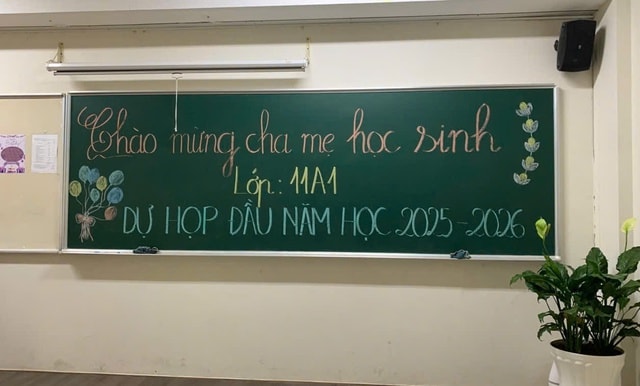 Chào mừng cha mẹ học sinh
Lớp: 11A1
DỰ HỌP ĐẦU NĂM HỌC 2025-2026